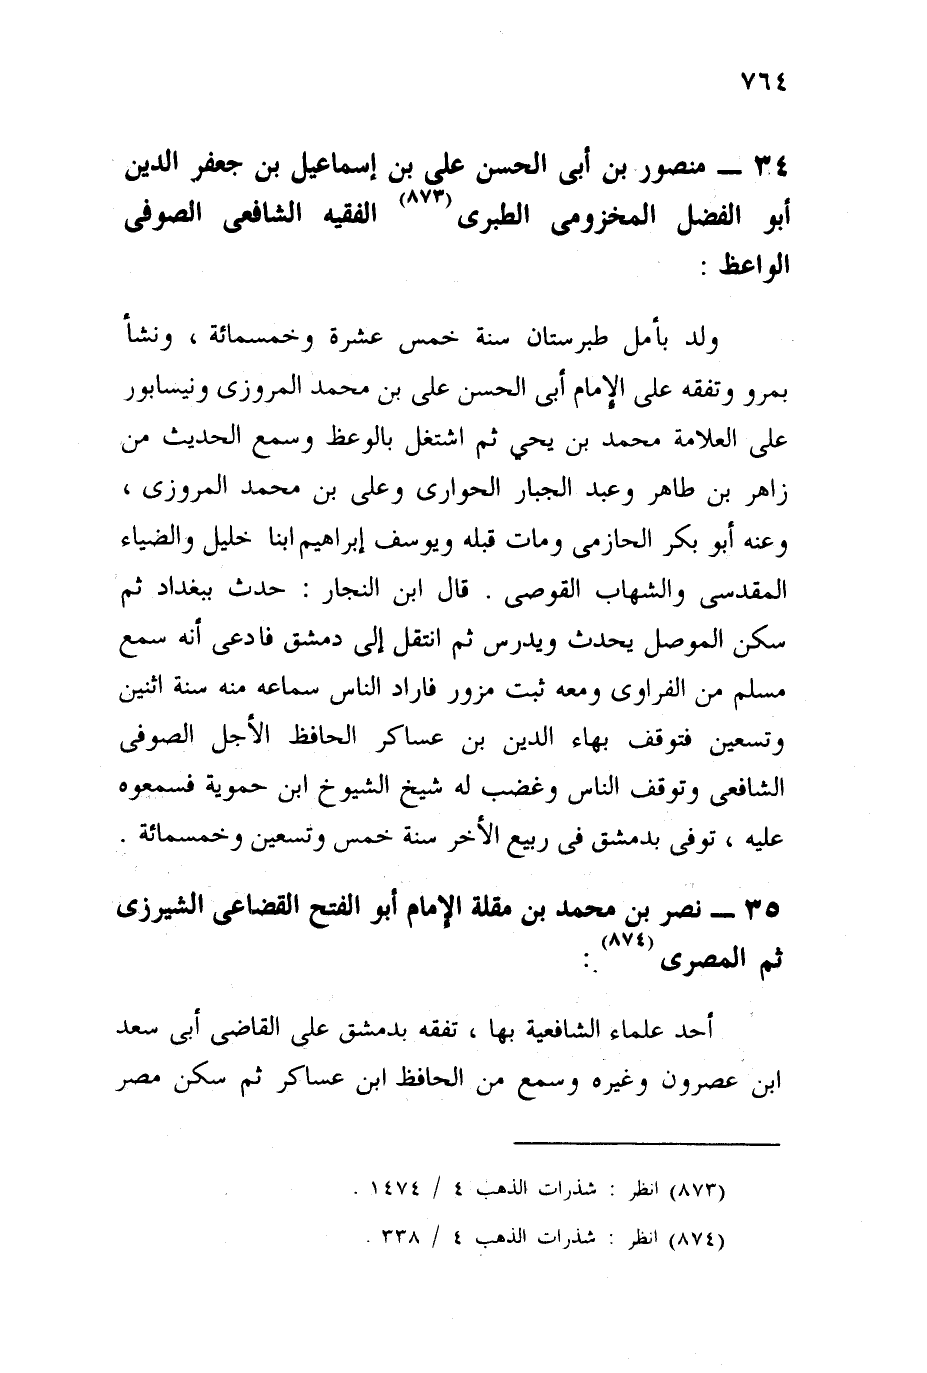 ٧٦٤
٣٤ ــ منصور بن أبى الحسن على بن إسماعيل بن جعفر الدين
أبو الفضل المخزومى الطبرى (٨٧٣) الفقيه الشافعى الصوفى
الواعظ :
ولد بأمل طبرستان سنة خمس عشرة وخمسمائة ، ونشأ
بمرو وتفقه على الإمام أبى الحسن على بن محمد المروزى ونيسابور
على العلامة محمد بن يحي ثم اشتغل بالوعظ وسمع الحديث من
زاهر بن طاهر وعبد الجبار الحوارى وعلى بن محمد المروزى ،
وعنه أبو بكر الحازمى ومات قبله ويوسف إبراهيم ابنا خليل والضياء
المقدسى والشهاب القوصى . قال ابن النجار : حدث ببغداد ثم
سكن الموصل يحدث ويدرس ثم انتقل إلى دمشق فادعى أنه سمع
مسلم من الفراوى ومعه ثبت مزور فاراد الناس سماعه منه سنة اثنين
وتسعين فتوقف بهاء الدين بن عساكر الحافظ الأجل الصوفى
الشافعى وتوقف الناس وغضب له شيخ الشيوخ ابن حموية فسمعوه
عليه ، توفى بدمشق فى ربيع الأخر سنة خمس وتسعين وخمسمائة .
٣٥ ــ نصر بن محمد بن مقلة الإمام أبو الفتح القضاعى الشيرزى
ثم المصرى (٨٧٤) :
أحد علماء الشافعية بها ، تفقه بدمشق على القاضى أبى سعد
ابن عصرون وغيره وسمع من الحافظ ابن عساكر ثم سكن مصر
(٨٧٣) انظر : شذرات الذهب ٤ / ١٤٧٤ .
(٨٧٤) انظر : شذرات الذهب ٤ / ٣٣٨ .